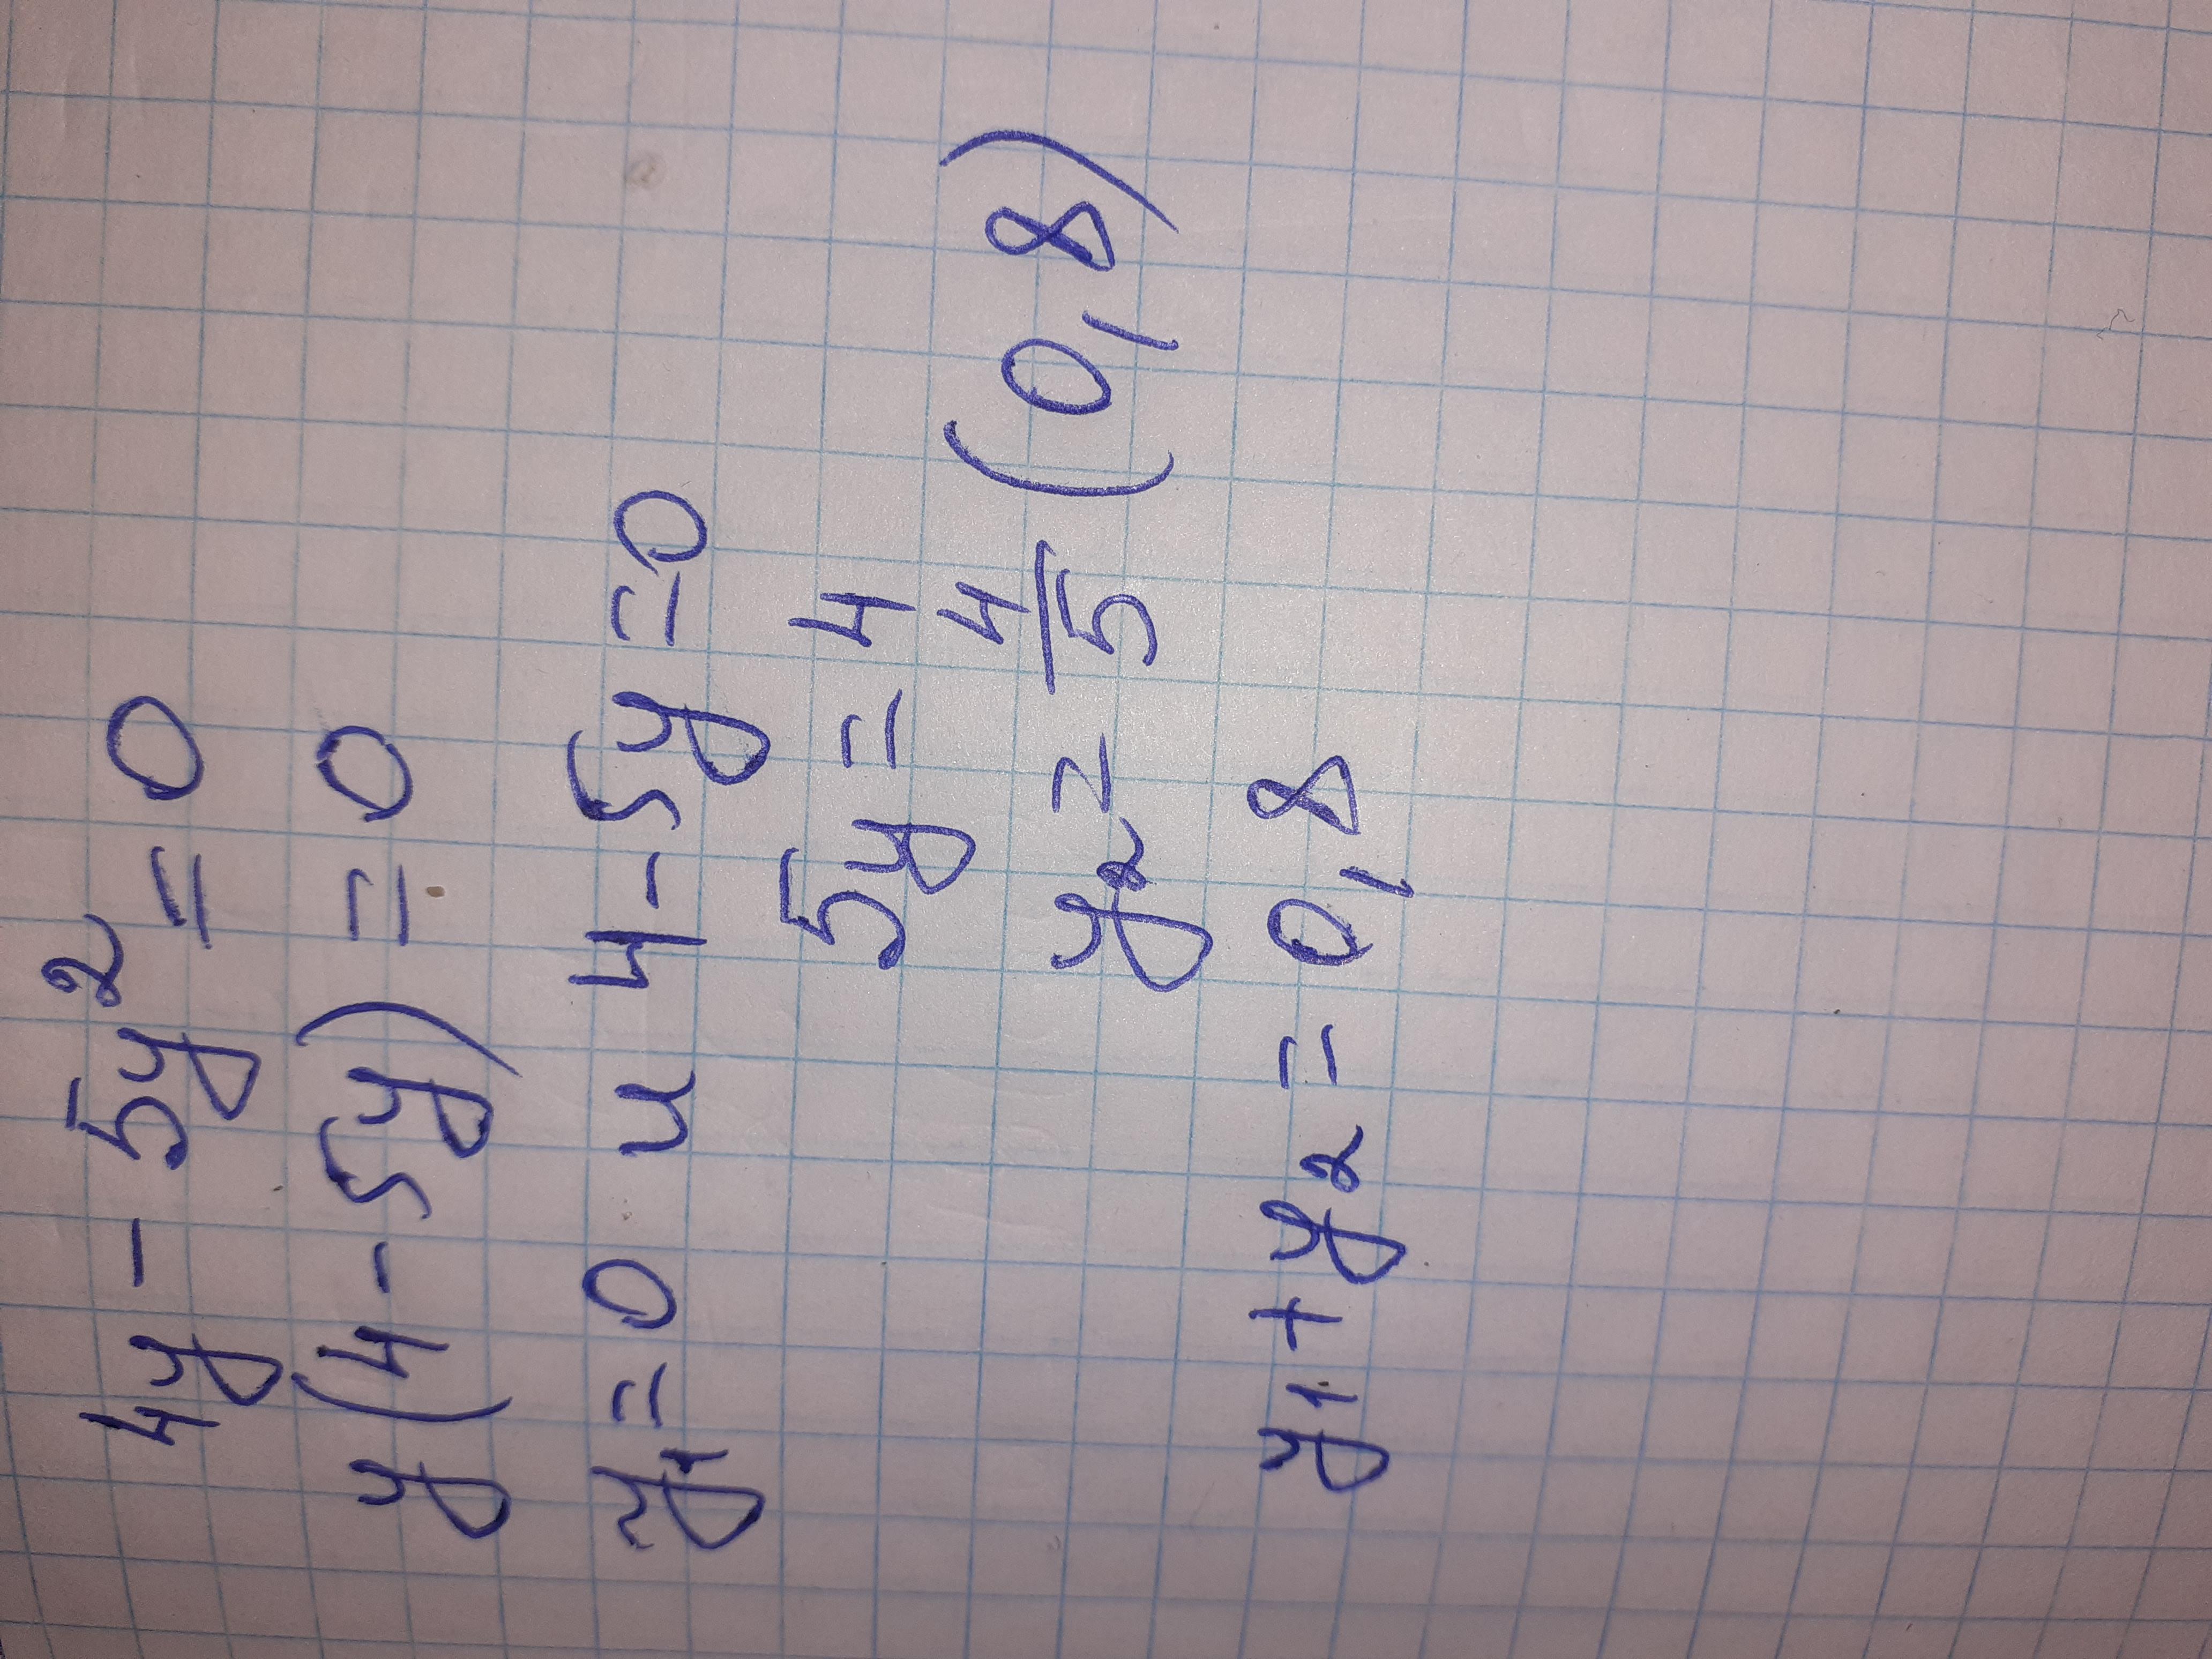 4y - 5y² = 0
y(4 - 5y) = 0
y₁ = 0 и 4 - 5y = 0
5y = 4
y₂ = 4/5 (0,8)
y₁ + y₂ = 0,8